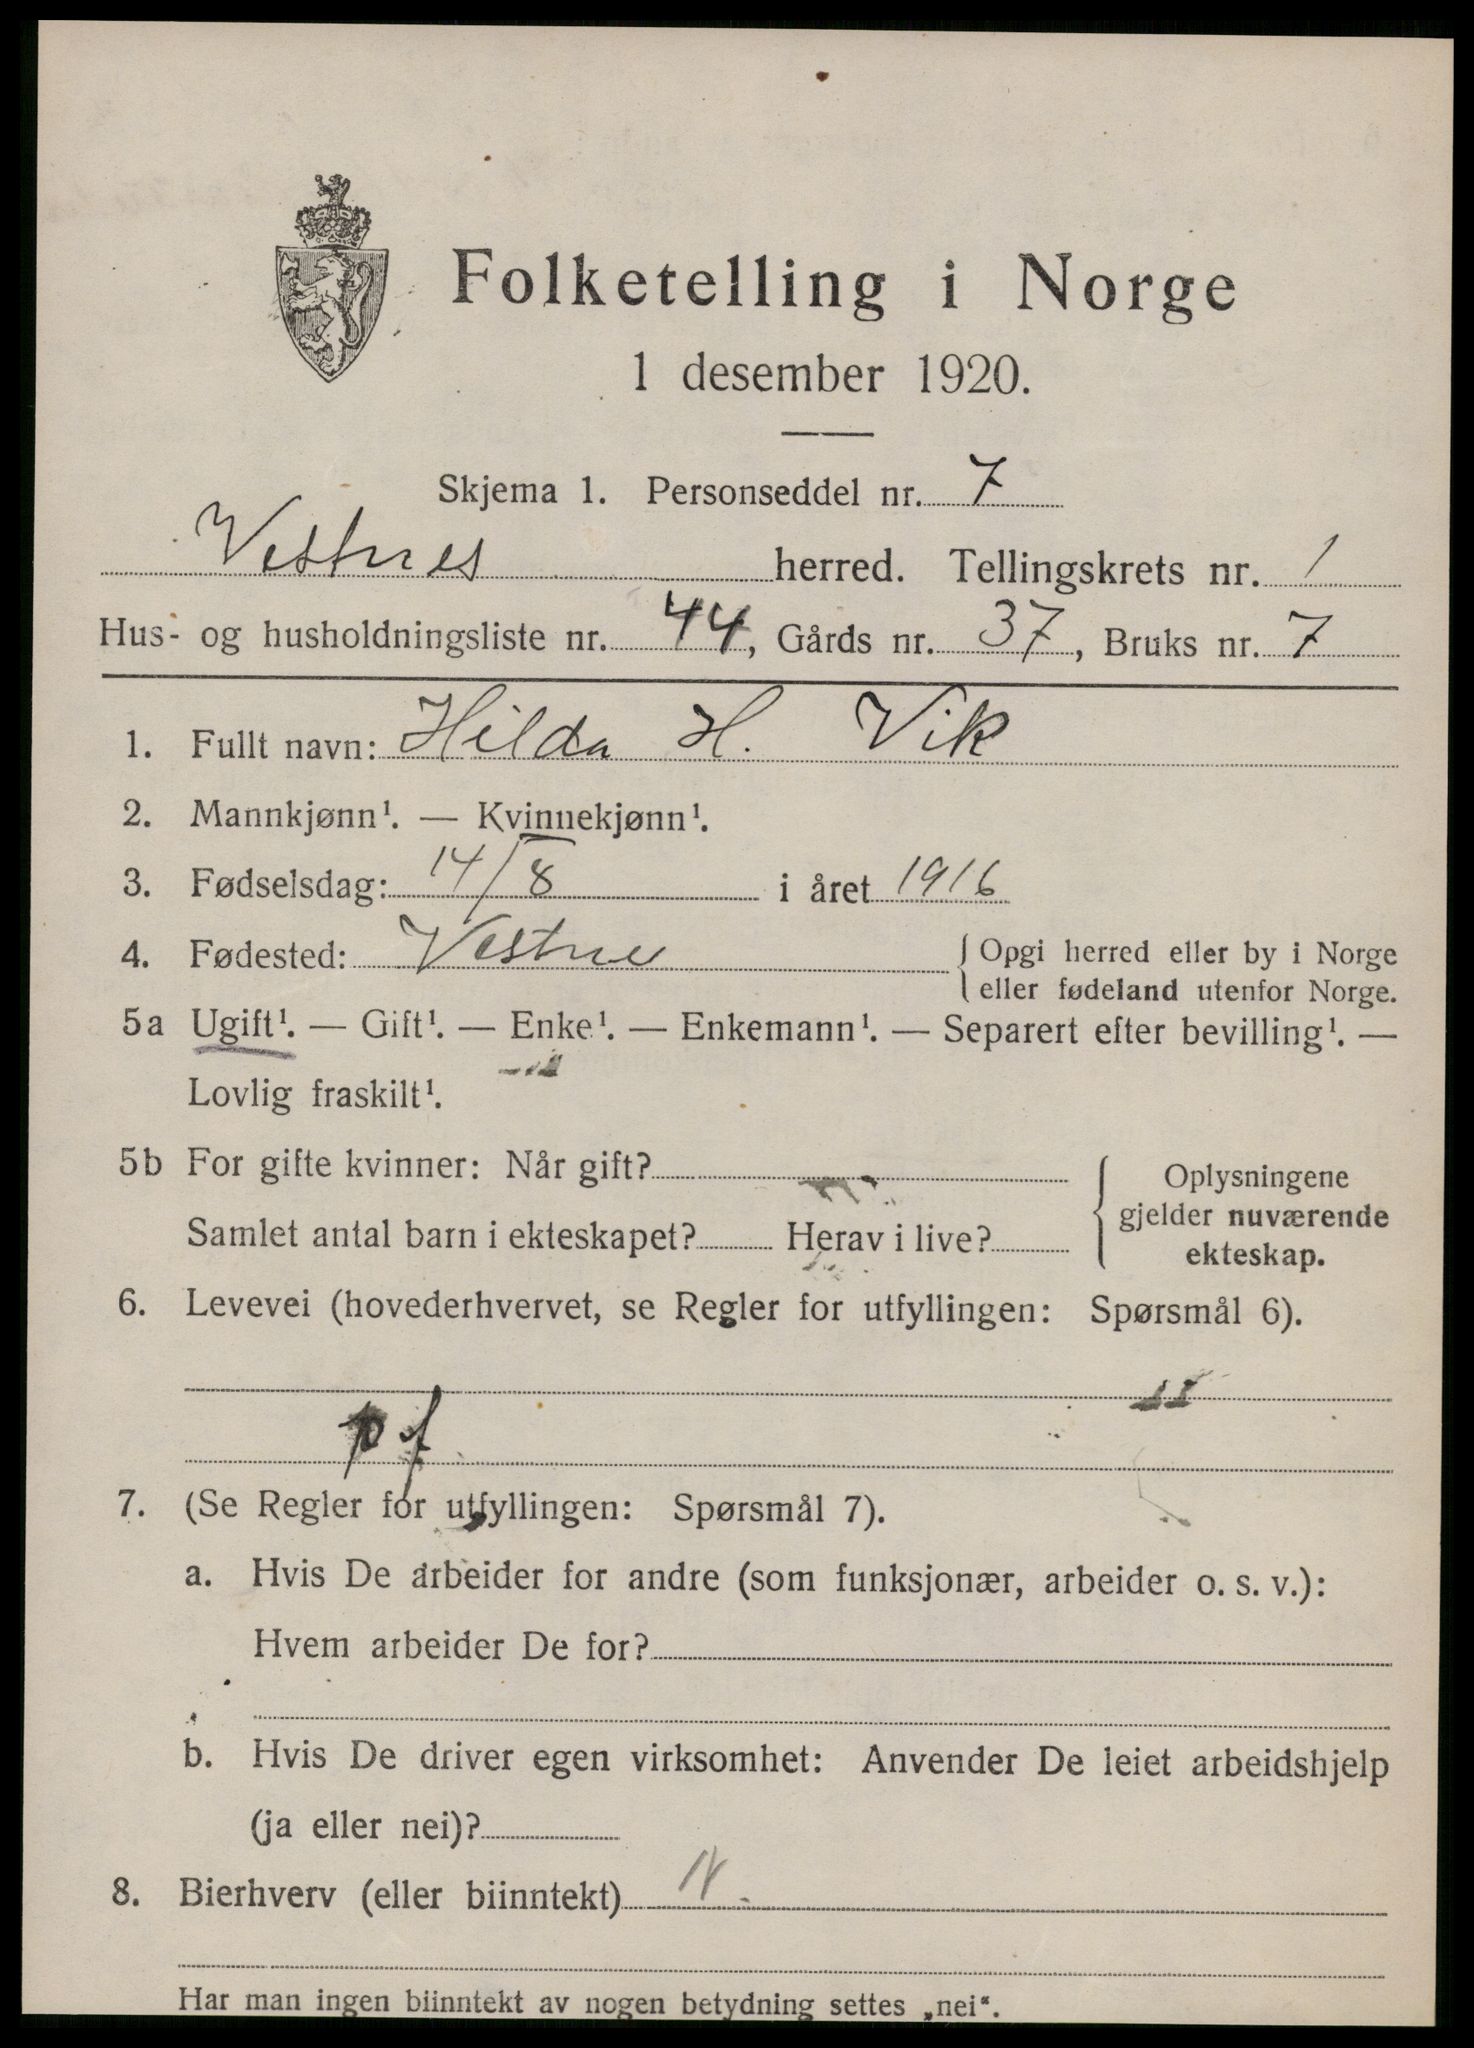 Folketelling i Norge
1 desember 1920.
Skjema 1. Personseddel nr. 7
Vestnes herred. Tellingskrets nr. 1
Hus- og husholdningsliste nr. 44, Gårds nr. 37, Bruks nr. 7
1. Fullt navn: Hilda H. Vik
2. Mannkjønn¹. — Kvinnekjønn¹.
3. Fødselsdag: 14/8 i året 1916
4. Fødested: Vestnes { Opgi herred eller by i Norge
eller fødeland utenfor Norge.
5a Ugift¹. — Gift¹. — Enke¹. — Enkemann¹. — Separert efter bevilling¹. —
Lovlig fraskilt¹.
5b For gifte kvinner: Når gift?
Samlet antal barn i ekteskapet? Herav i live?
{ Oplysningene
gjelder nuværende
ekteskap.
6. Levevei (hovederhvervet, se Regler for utfyllingen: Spørsmål 6).
pf
7. (Se Regler for utfyllingen: Spørsmål 7).
a. Hvis De arbeider for andre (som funksjonær, arbeider o. s. v.):
Hvem arbeider De for?
b. Hvis De driver egen virksomhet: Anvender De leiet arbeidshjelp
(ja eller nei)?
8. Bierhverv (eller biinntekt) N.
Har man ingen biinntekt av nogen betydning settes „nei“.